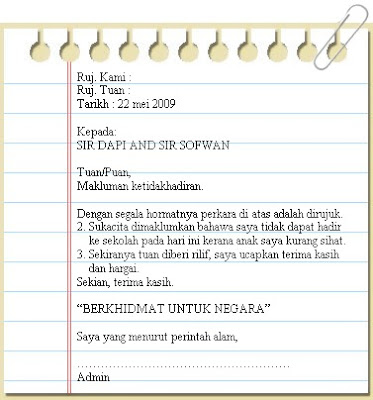 Ruj. Kami :
Ruj. Tuan :
Tarikh : 22 mei 2009
Kepada:
SIR DAPI AND SIR SOFWAN
Tuan/Puan,
Makluman ketidakhadiran.
Dengan segala hormatnya perkara di atas adalah dirujuk.
2. Sukacita dimaklumkan bahawa saya tidak dapat hadir
ke sekolah pada hari ini kerana anak saya kurang sihat.
3. Sekiranya tuan diberi rilif, saya ucapkan terima kasih
dan hargai.
Sekian, terima kasih.
“BERKHIDMAT UNTUK NEGARA”
Saya yang menurut perintah alam,
......................................................
Admin